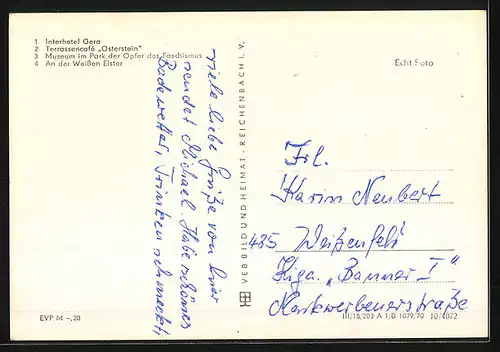 1 Interhotel Gera
2 Terrassencafé „Osterstein"
3 Museum im Park der Opfer des Faschismus
4 An der Weißen Elster
Echt Foto
viele liebe Grüße von hier
sendet Michael. Habe schönes
Badewetter, Trinken schmeckt,
VEB BILD UND HEIMAT · REICHENBACH I. V.
Frl.
Karin Neubert
485 Weißenfels
Kiga. „Banner I"
Markwerbenerstraße
EVP M –,20
III/18/203 A 1/B 1079/70 10/4072